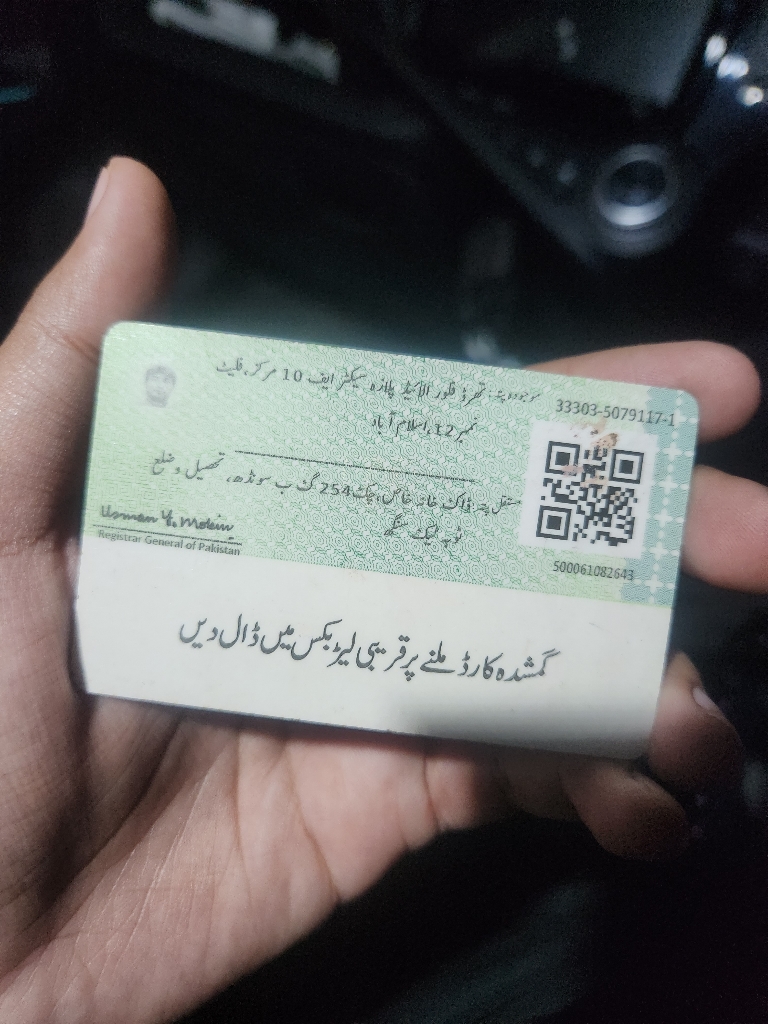 موجودہ پتہ: تھرڈ فلور الاکبڑ پلازہ سیکٹر ایف 10 مرکز، فلیٹ
نمبر 12، اسلام آباد
33303-5079117-1
مستقل پتہ: ڈاک خانہ خاص، چک 254 گ ب سونڈھ، تحصیل و ضلع
ٹوبہ ٹیک سنگھ
Registrar General of Pakistan
500061082643
گمشدہ کارڈ ملنے پر قریبی لیٹر بکس میں ڈال دیں